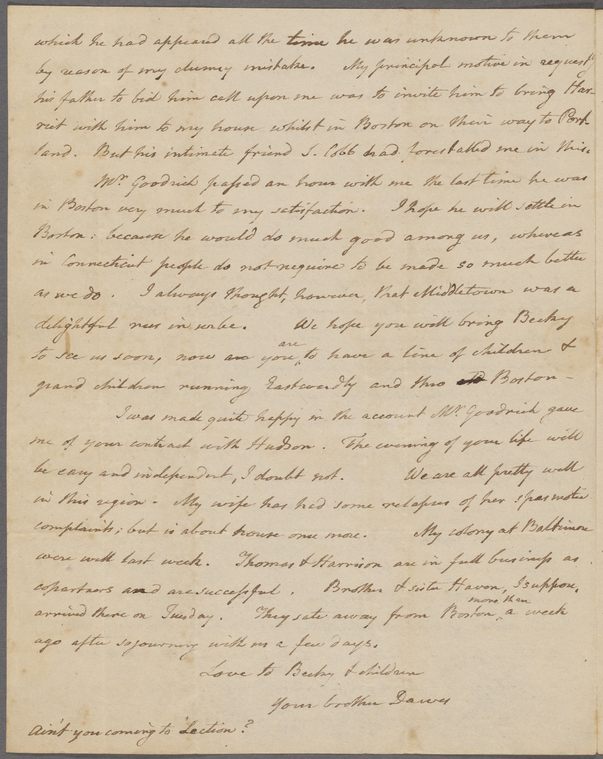 which he had appeared all the time he was unknown to them
by reason of my clumsy mistake. My principal motive in requestg
his father to bid him call upon me was to invite him to bring Har-
riet with him to my house whilst in Boston on their way to Port-
land. But his intimate friend S. Cobb had forestalled me in this.
Mr. Goodrich passed an hour with me the last time he was
in Boston very much to my satisfaction. I hope he will settle in
Boston: because he would do much good among us, whereas
in Connecticut people do not require to be made so much better
as we do. I always thought, however, that Middletown was a
delightful rus in urbe. We hope you will bring Becky
are
to see us soon, now you to have a line of children &
grand children running Eastwardly and thro Boston -
I was made quite happy in the account Mr. Goodrich gave
me of your contract with Hudson. The evening of your life will
be easy and independent, I doubt not. We are all pretty well
in this region. My wife has had some relapses of her spasmotic
complaints; but is about house once more. My colony at Baltimore
were well last week. Thomas & Harrison are in full business as
copartners and are successful. Brother & sister Haven, I suppose,
more than
arrived there on Tuesday. They sate away from Boston a week
ago after sojourning with us a few days.
Love to Becky & children
Your brother Dawes
Ain't you coming to 'Lection?